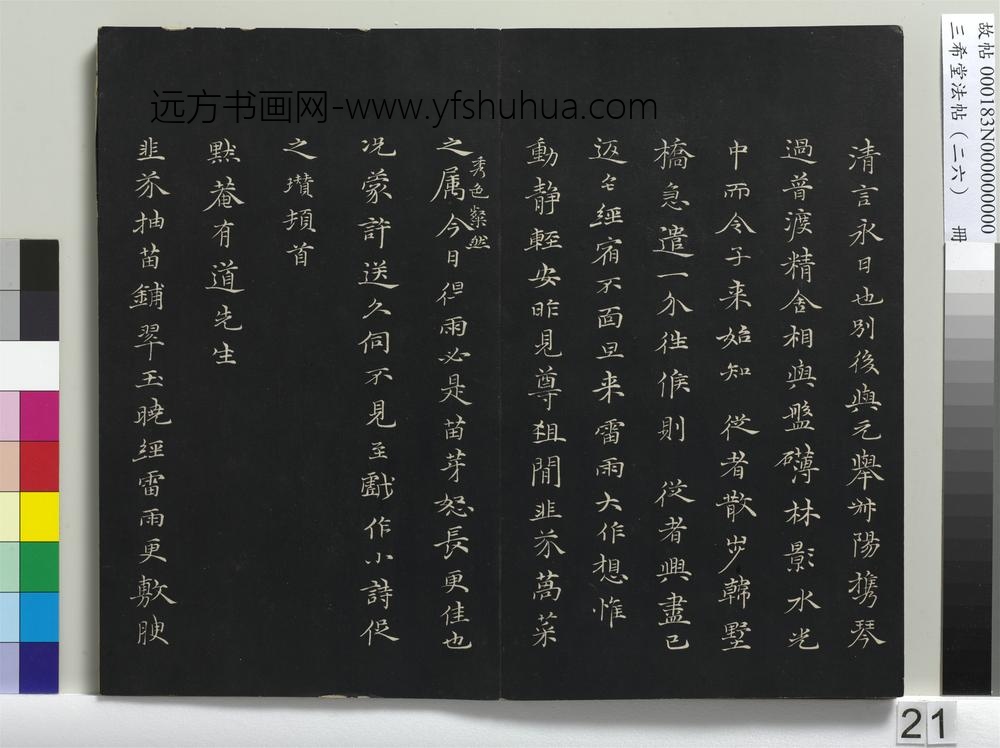 清言永日也別後與元舉艸陽攜琴
過普渡精舍相與盤礴林影水光
中而令子来始知從者散步韓墅
橋急遣一介往候則從者興盡已
返矣經宿不面旦来雷雨大作想惟
動静輕安昨見尊俎間韭芥萵菜
之属秀色粲然今日得雨必是苗芽怒長更佳也
况蒙許送久伺不見至戲作小詩促
之瓚頓首
黙菴有道先生
韭芥抽苗鋪翠玉曉經雷雨更敷腴
远方书画网-www.yfshuhua.com
故帖 000183N000000000
三希堂法帖(二六) 冊
21